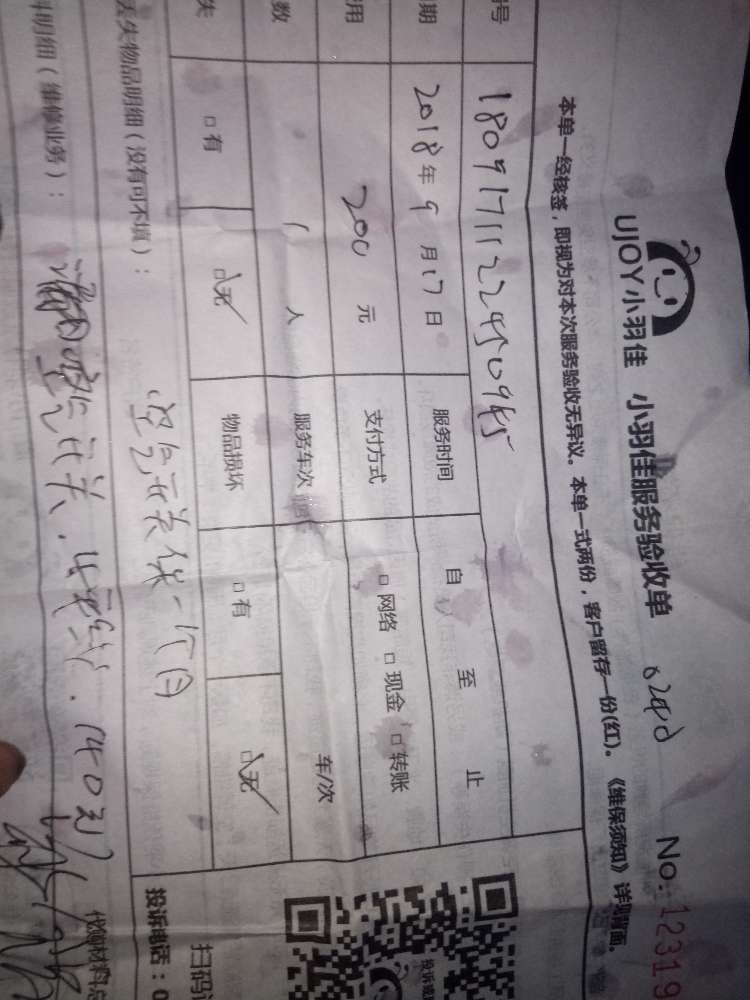 UJOY小羽佳 小羽佳服务验收单 No:12319
本单一经核签，即视为对本次服务验收无异议。本单一式两份，客户留存一份(红)。《维保须知》详见背面。
号 1809171122450945
期 2018年9月17日 服务时间 自 至 止
用 200 元 支付方式 □网络 □现金 □转账
数 1 人 服务车次 车/次
失 □有 □无 物品损坏 □有 □无
丢失物品明细（没有可不填）：
空气开关保一个月
料明细（维修业务）：
空气开关、140元
扫码
投诉电话：0